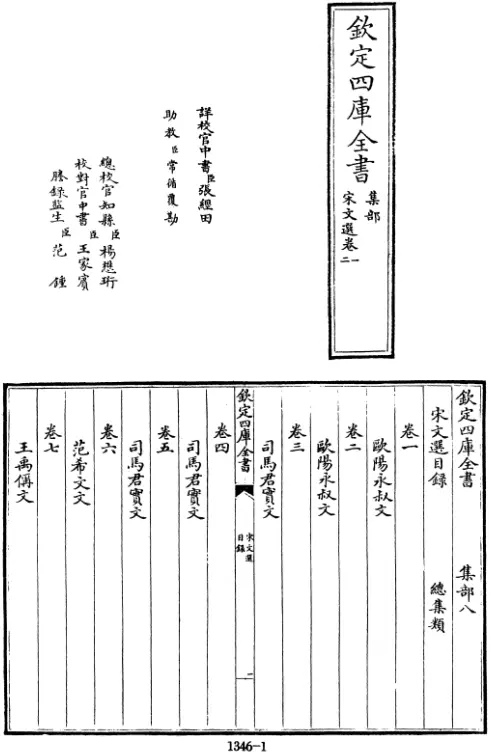 欽定四庫全書
集部
宋文選卷一二
詳校官中書臣張經田
助教臣常循覆勘
總校官知縣臣楊懋珩
校對官中書臣王家賓
謄錄監生臣范鍾
欽定四庫全書
集部八
宋文選目錄
總集類
卷一
歐陽永叔文
卷二
歐陽永叔文
卷三
司馬君實文
欽定四庫全書
宋文選
目錄
卷四
司馬君實文
卷五
司馬君實文
卷六
范希文文
卷七
王禹偁文
1346-1